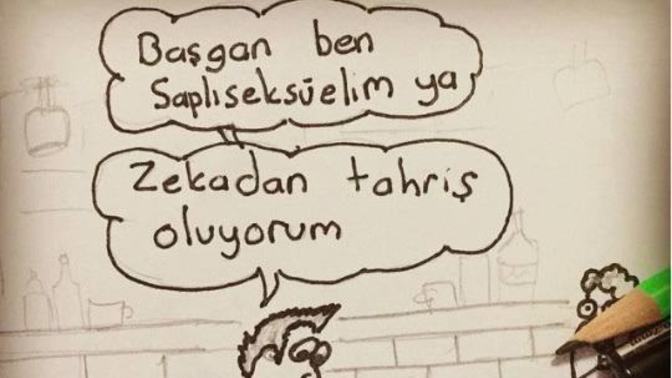 Başgan ben
Saplıseksüelim ya
Zekadan tahriş
oluyorum